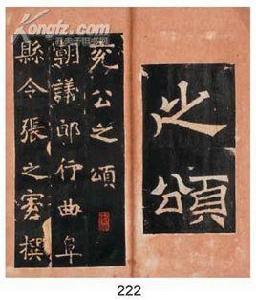 Kongfz.com
之頌
兖公之頌
朝議郎行曲阜
縣令張之宏撰
222